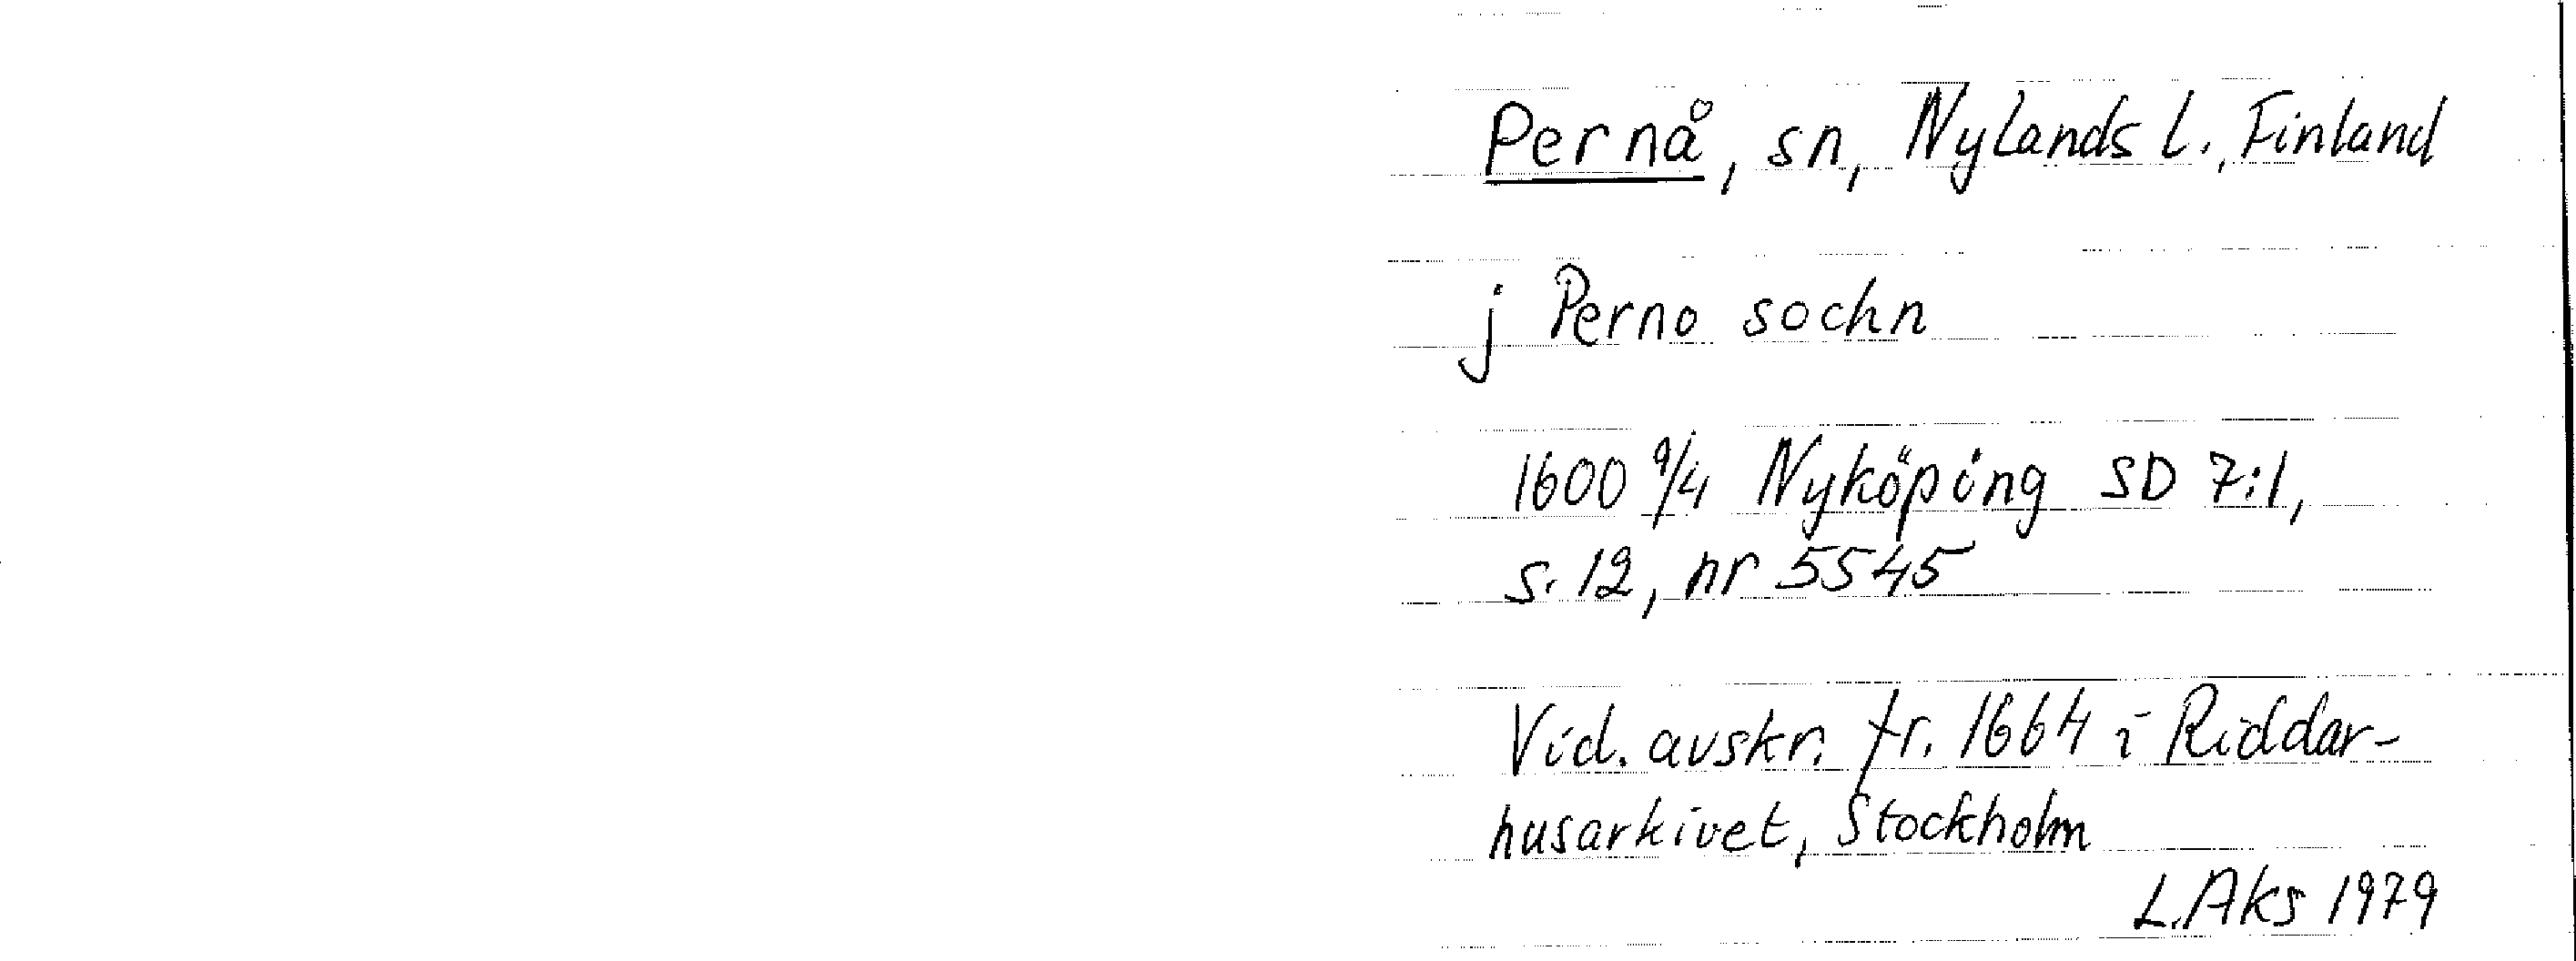 Pernå, sn, Nylands l., Finland
j Perno sochn
1600 9/4 Nyköping SD 7:1,
s. 12, nr 5545
Vid. avskr. fr. 1664 i Riddar-
husarkivet, Stockholm
L. Aks 1979